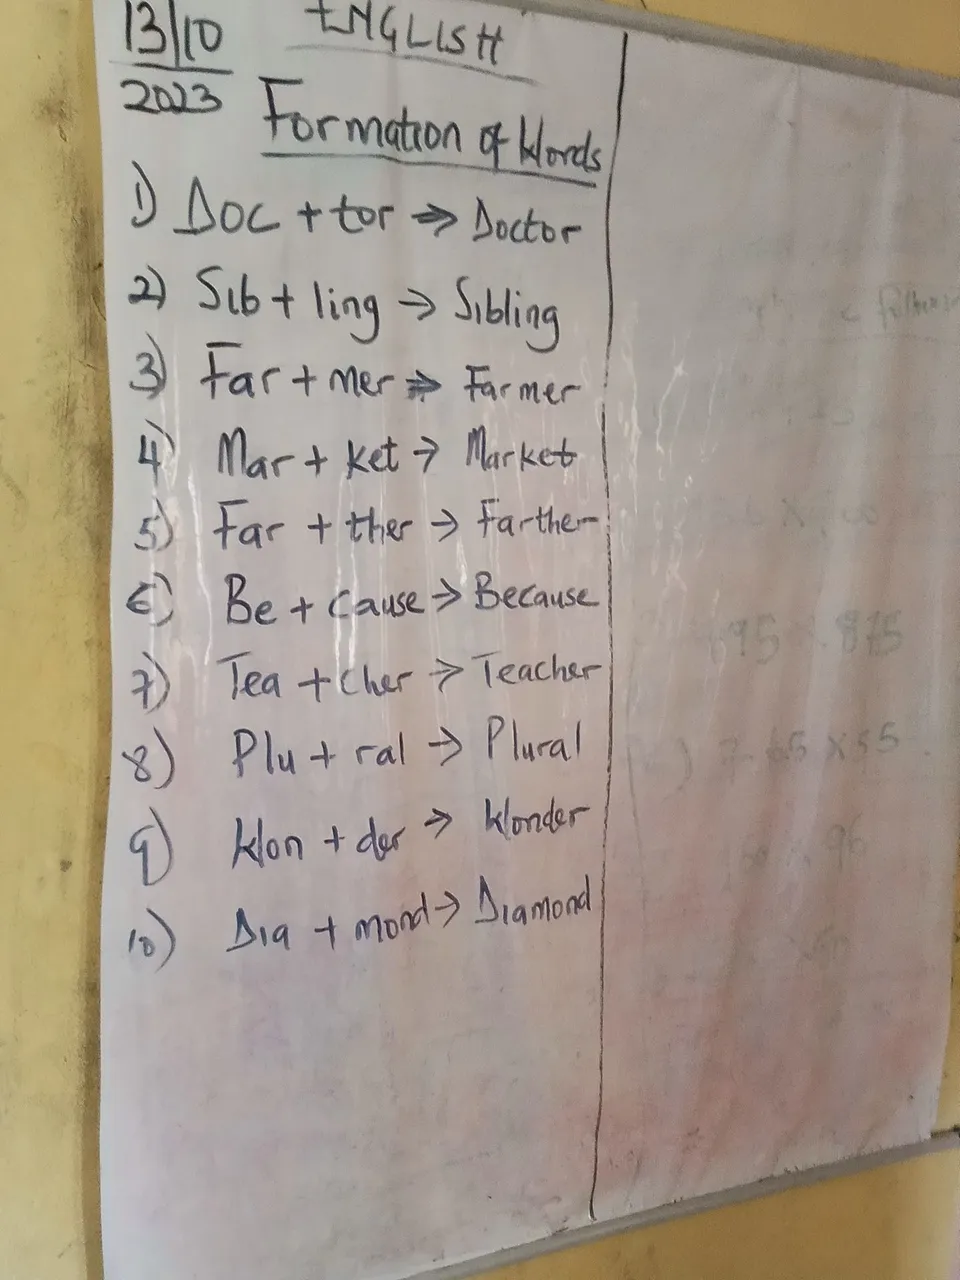 13/10
2023
ENGLISH
Formation of Words
1) Doc + tor => Doctor
2) Sib + ling → Sibling
3) Far + mer => Farmer
4) Mar + ket → Market
5) Far + ther → Farther
6) Be + cause → Because
7) Tea + cher → Teacher
8) Plu + ral → Plural
9) Won + der → Wonder
10) Dia + mond → Diamond
95 875